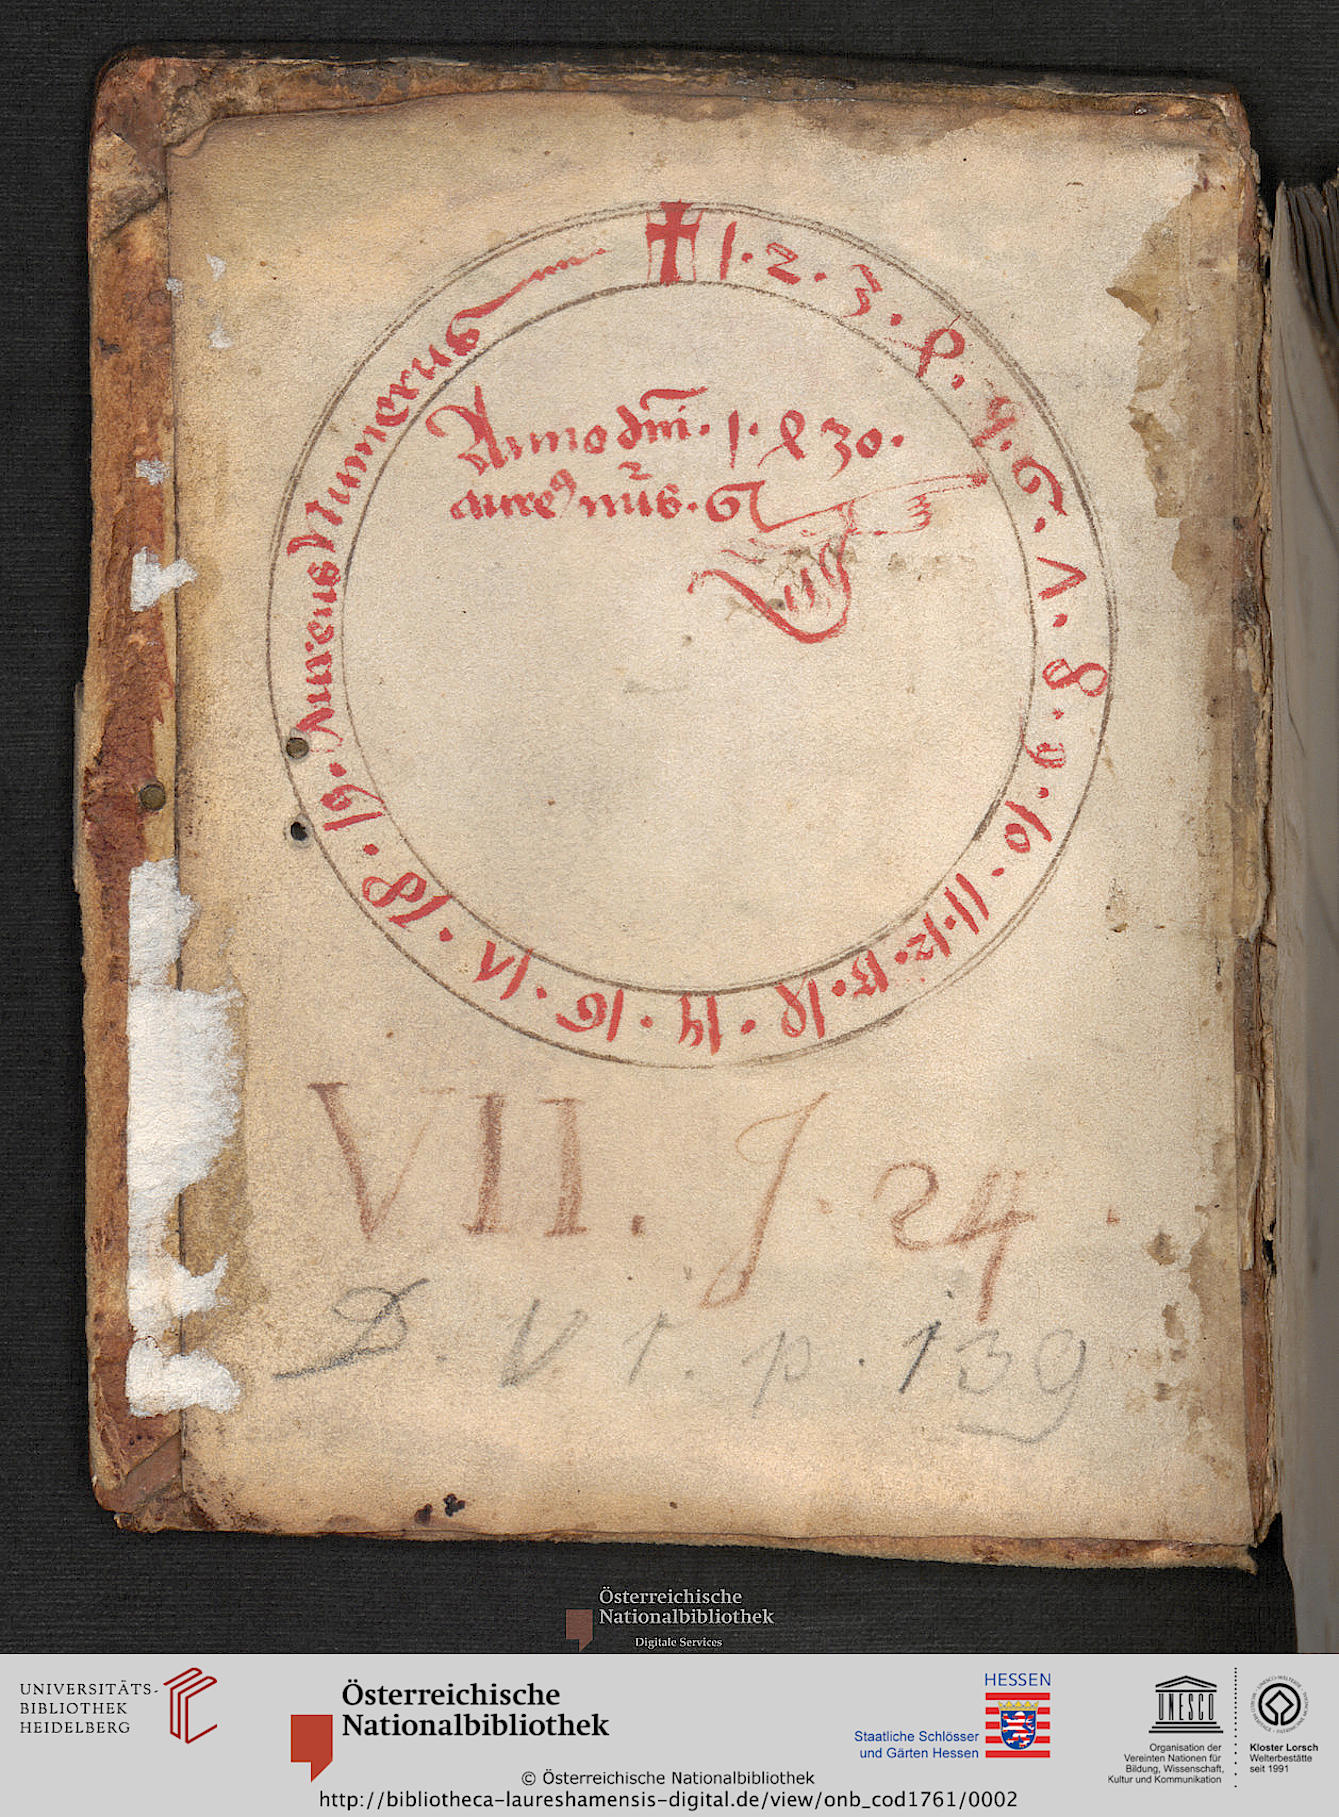 ✝ 1 · 2 · 3 · 4 · 5 · 6 · 7 · 8 · 9 · 10 · 11 · 12 · 13 · 14 · 15 · 16 · 17 · 18 · 19 · Aureus Numerus
Anno dm̄i · 1 · 4 30 ·
aureꝰ nūs · 6
VII. J. 24.
D. V 1. p. 139
Österreichische
Nationalbibliothek
Digitale Services
UNIVERSITÄTS-
BIBLIOTHEK
HEIDELBERG
Österreichische
Nationalbibliothek
HESSEN
Staatliche Schlösser
und Gärten Hessen
UNESCO
Organisation der
Vereinten Nationen für
Bildung, Wissenschaft,
Kultur und Kommunikation
Kloster Lorsch
Welterbestätte
seit 1991
© Österreichische Nationalbibliothek
http://bibliotheca-laureshamensis-digital.de/view/onb_cod1761/0002